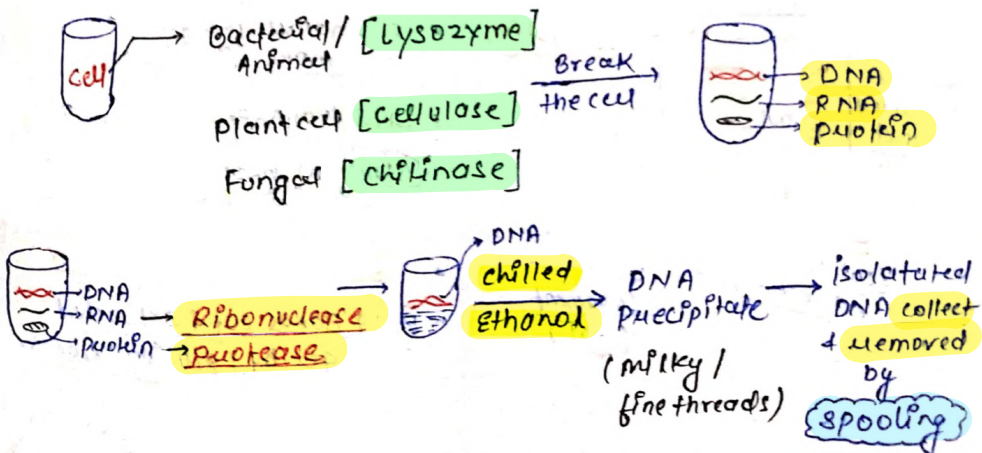 Cell
Bacterial/ [Lysozyme]
Animal
Plant cell [Cellulase]
Fungal [Chitinase]
Break
the cell
DNA
RNA
Protein
DNA
RNA
protein
Ribonuclease
Protease
DNA
Chilled
Ethanol
DNA
Precipitate
(milky/
fine threads)
isolatured
DNA collect
& removed
by
Spooling